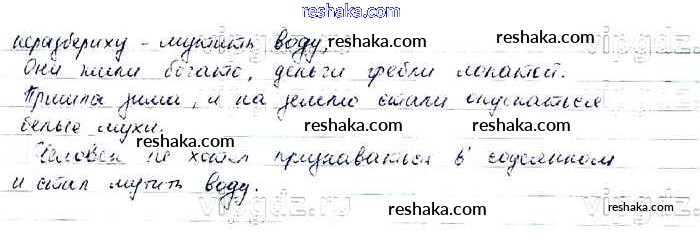 reshaka.com
неразбериху - мутить воду. reshaka.com reshaka.com
Они жили богато, деньги гребли лопатой.
Пришла зима, и на землю стали опускаться
белые мухи. reshaka.com reshaka.com
Человек не хотел признаваться в содеянном
и стал мутить воду. reshaka.com
vipgdz.ru vipgdz.ru
reshaka.com